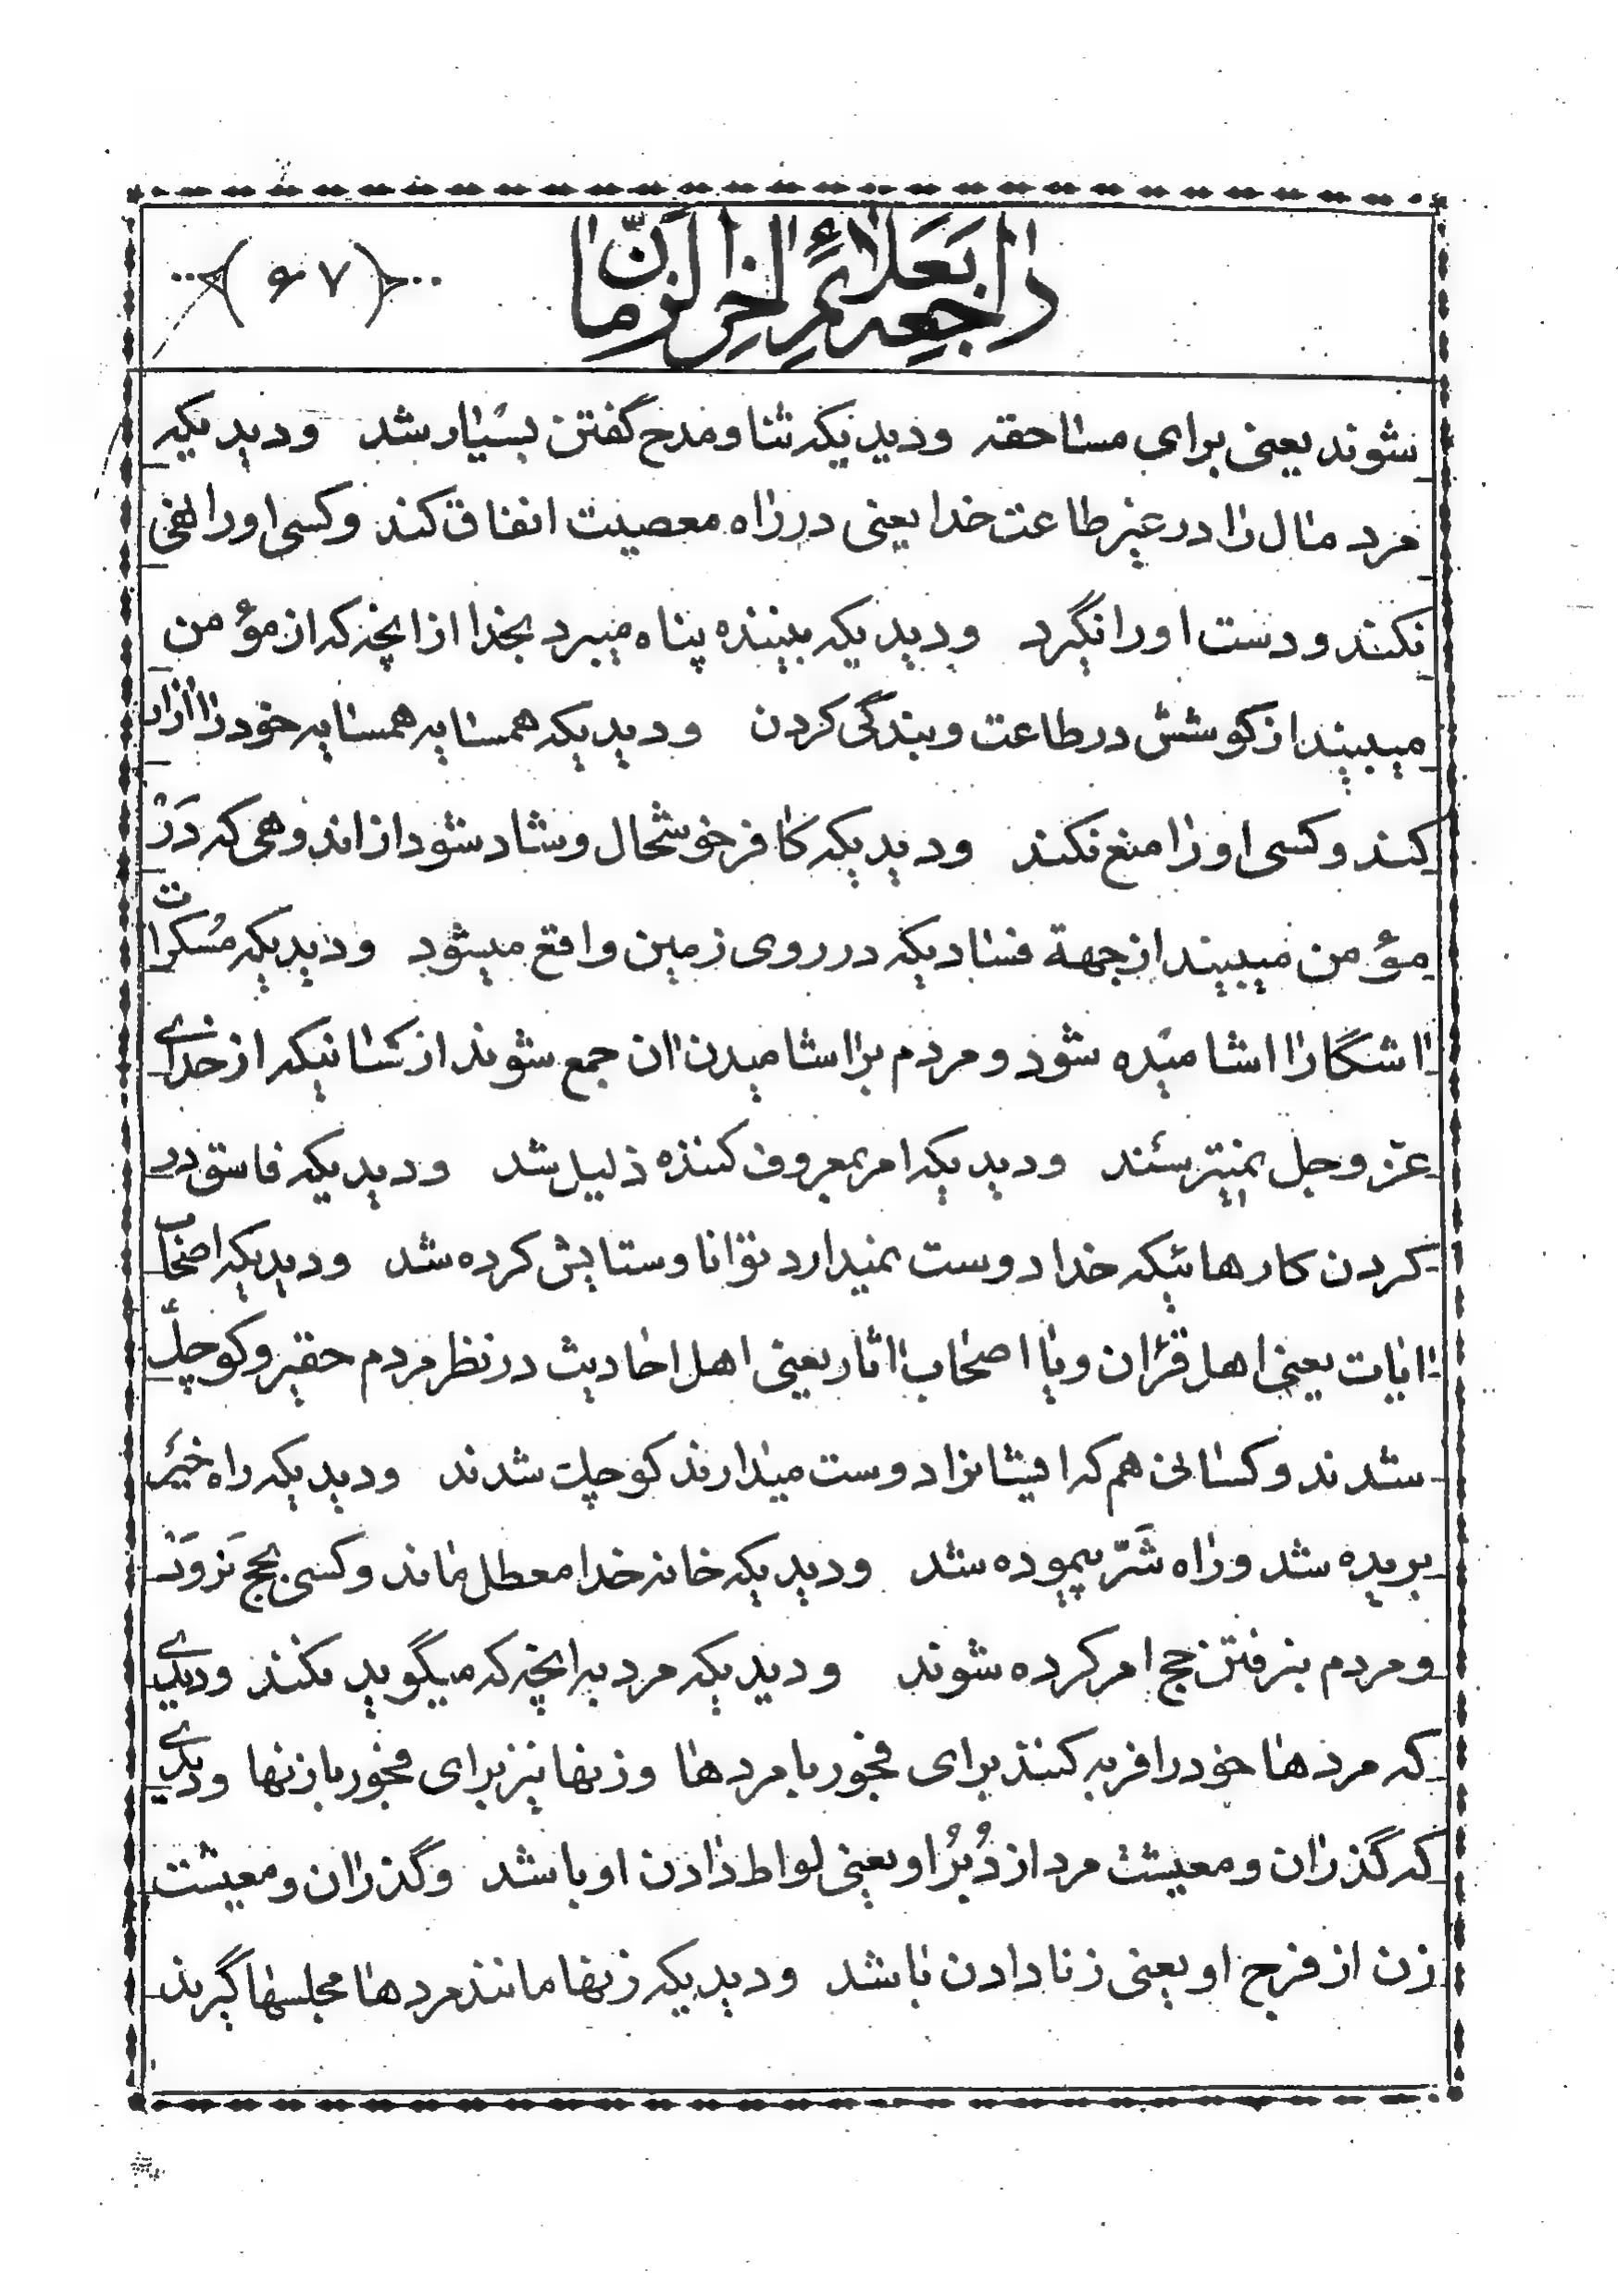 راجعه بعلائم اخر الزمان
(۶۷)
شوند یعنی برای مساحقه ودیدیکه ثنا ومدح گفتن بسیار شد ودیدیکه
مرد مال را در غیر طاعت خدا یعنی در راه معصیت انفاق کند وکسی او را نهی
نکند ودست او را نگیرد ودیدیکه بیننده پناه میبرد بخدا از انچه که از مؤمن
میبیند از کوشش در طاعت وبندگی کردن ودیدیکه همسایه همسایه خود را ازار
کند وکسی او را منع نکند ودیدیکه کافر خوشحال وشاد شود از اندوهی که دَرْ
مؤمن میبیند از جهة فسادیکه در روی زمین واقع میشود ودیدیکه مُسکرات
اشگارا اشامیده شود ومردم برا شامیدن ان جمع شوند از کسانیکه از خدای
عزّ وجل نمیترسند ودیدیکه امر بمعروف کننده ذلیل شد ودیدیکه فاسق در
کردن کارهائیکه خدا دوست نمیدارد توانا وستایش کرده شد ودیدیکه اصحاب
ایات یعنی اهل قرآن ویا اصحاب اثار یعنی اهل احادیث در نظر مردم حقیر وکوچک
شدند وکسانی هم که ایشانرا دوست میدارند کوچک شدند ودیدیکه راه خیَر
بریده شد وراه شَرّ پیموده شد ودیدیکه خانه خدا معطل ماند وکسی بحج نَروَدْ
ومردم بنرفتن حج امر کرده شوند ودیدیکه مرد به انچه که میگوید نکند ودیدی
که مردها خود را فربه کنند برای فجور با مردها وزنها نیز برای فجور با زنها ودیدی
که گذران ومعیشت مرد از دُبُر او یعنی لواط دادن او باشد وگذران ومعیشت
زن از فرج او یعنی زنا دادن باشد ودیدیکه زنها مانند مردها مجلسها گیرند